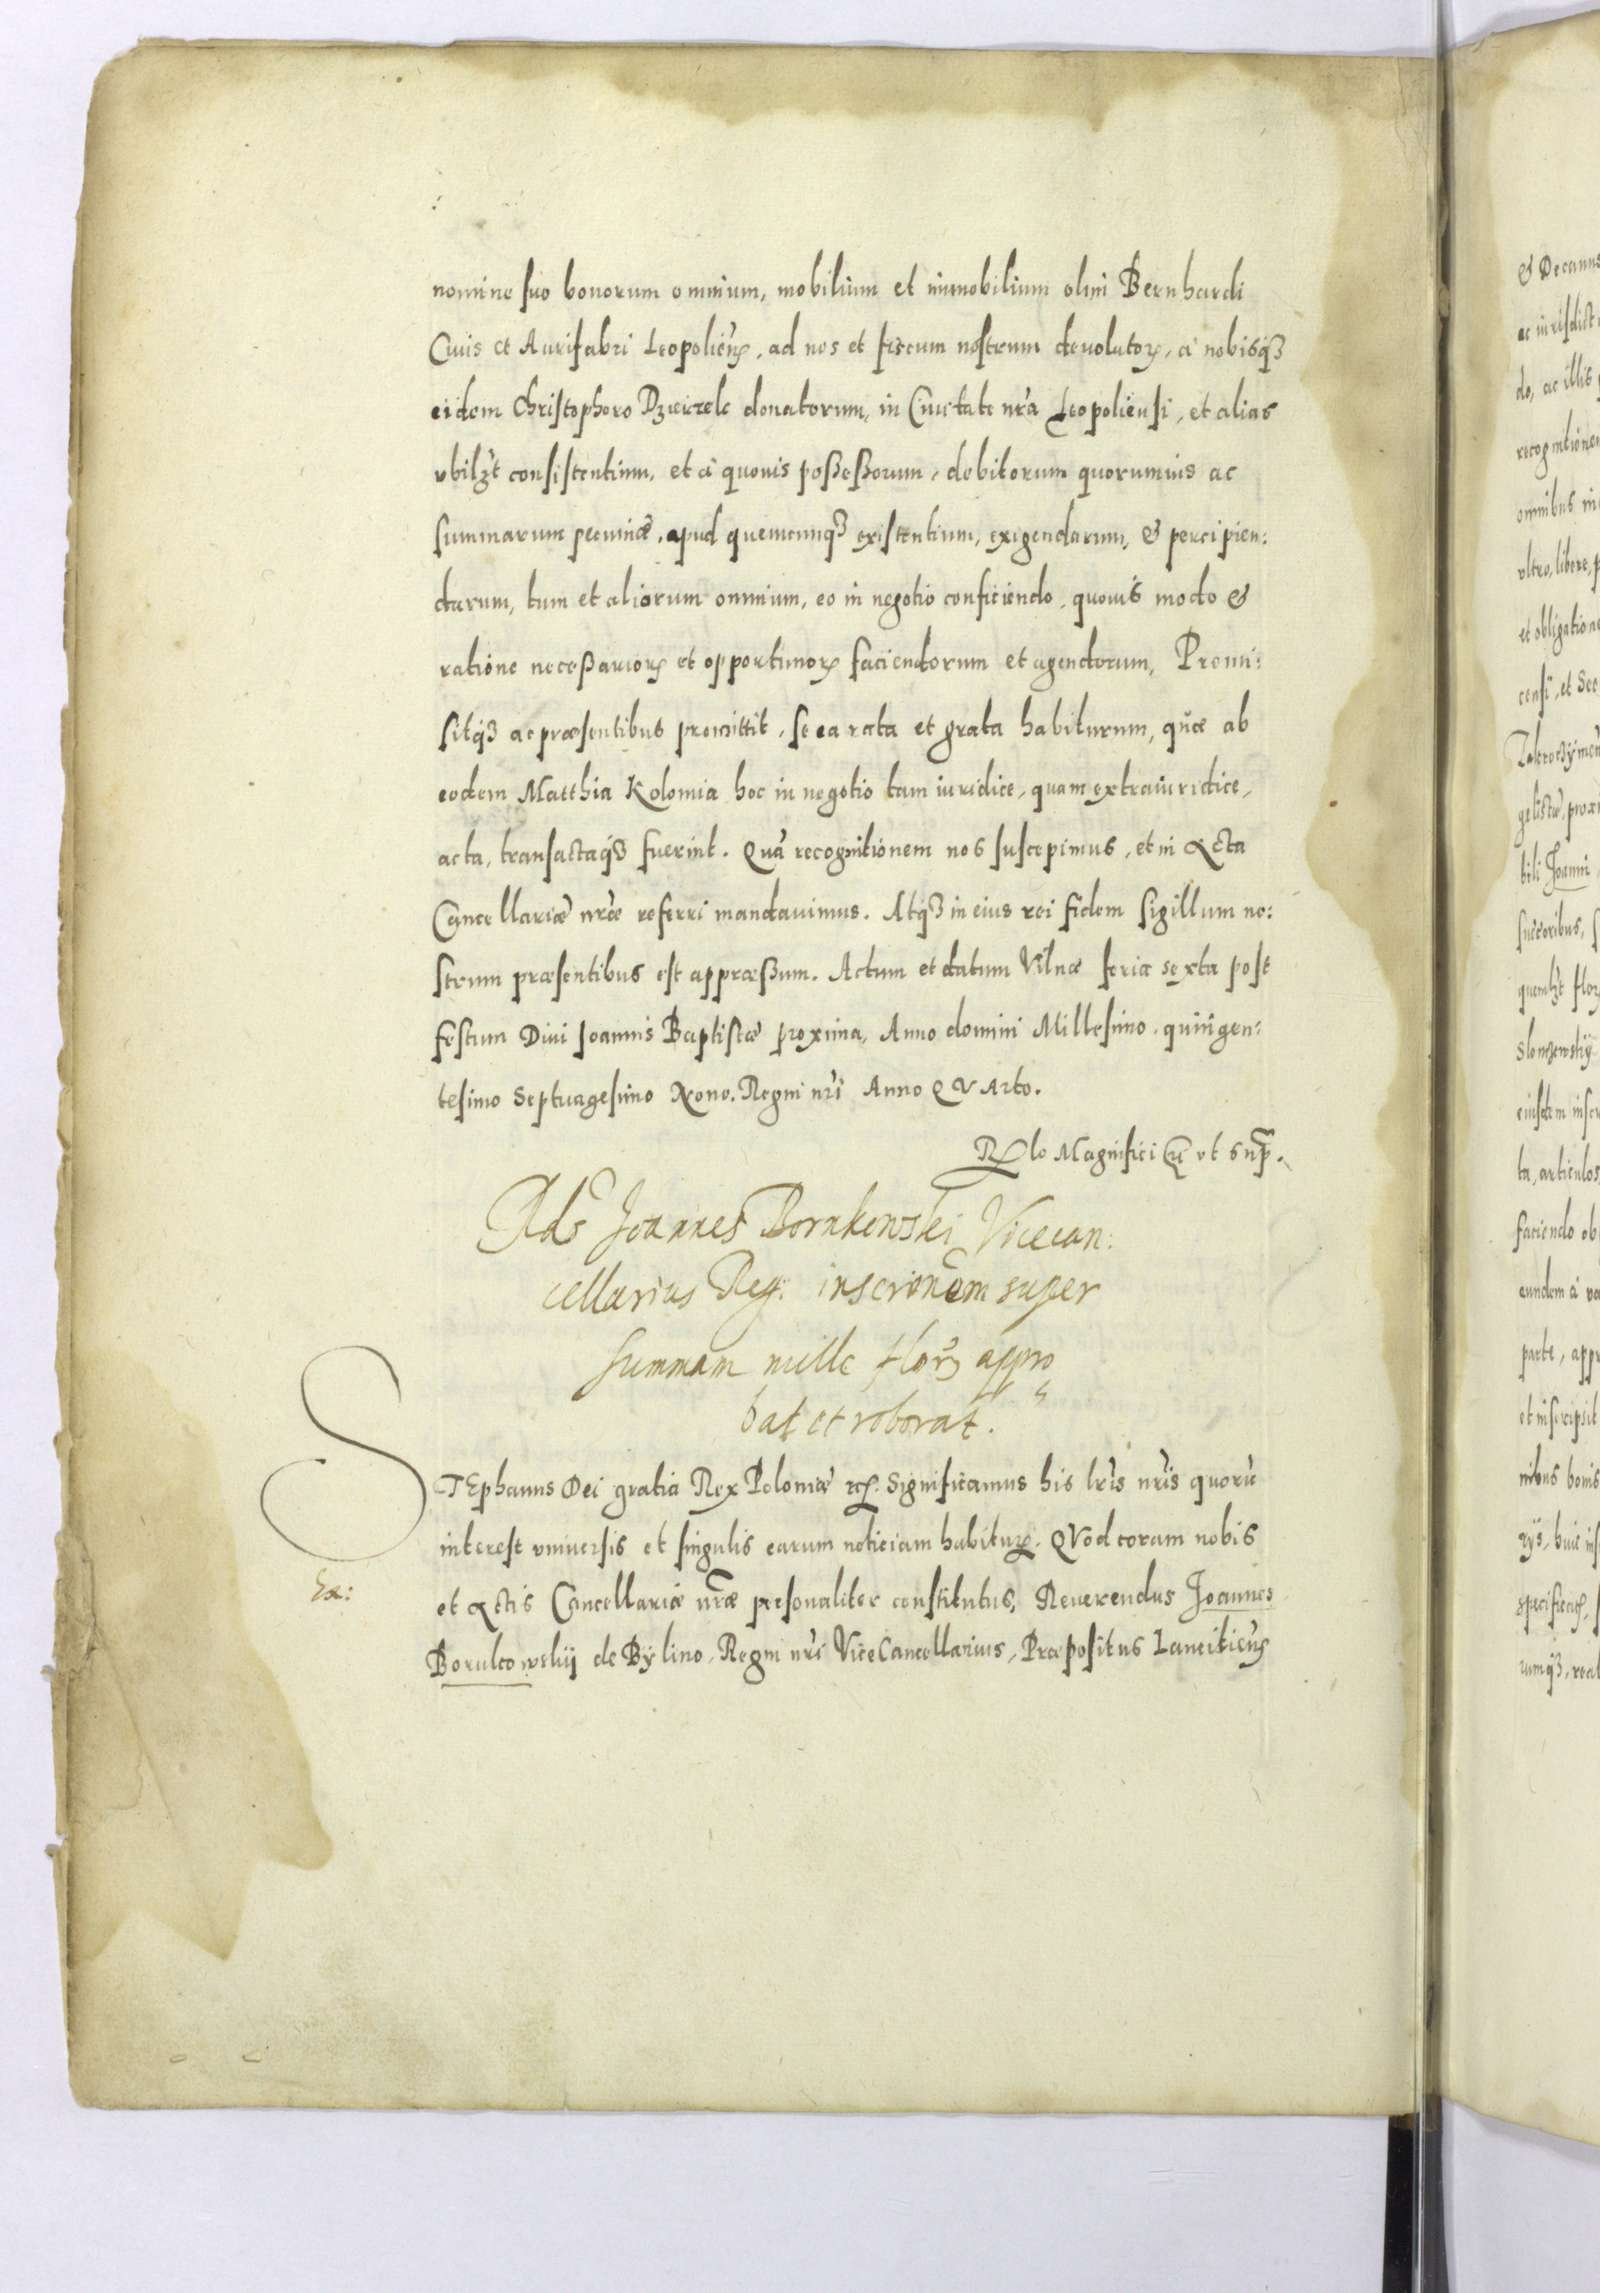 nomine suo bonorum omnium, mobilium et immobilium olim Bernhardi
Ciuis et Aurifabri Leopolieñ, ad nos et fiscum nostrum deuolutoꝝ, a nobisqȝ
eidem Christophoro Dzierzek donatorum, in Ciuitate nr̃a Leopoliensi, et alias
vbilꝫt consistentium, et a quouis poßeßorum, debitorum quorumuis ac
summarum pecuniæ, apud quemcunqȝ existentium, exigendarum, & percipien:
darum, tum et aliorum omnium, eo in negotio conficiendo, quouis modo &
ratione neceßarioꝝ et opportunoꝝ faciendorum et agendorum, Promi:
sitqȝ ac præsentibus promittit, se ea rata et grata habiturum, quæ ab
eodem Matthia Kolomia hoc in negotio tam iuridice, quam extraiuridice,
acta, transactaqȝ fuerint. Quã recognitionem nos suscepimus, et in Acta
Cancellariæ nr̃æ referri mandauimus. Atqȝ in eius rei fidem sigillum no:
strum præsentibus est appræßum. Actum et datum Vilnæ feria sexta post
festum Diui Joannis Baptistæ proxima, Anno domini Millesimo quingen:
tesimo Septuagesimo Nono. Regni nr̃i Anno QVArto.
Rlo Magnifici Cũ vt sup̃.
Ids Joannes Borukowski Vicecan:
cellarius Reg: inscrion̄em super
summam mille flor̃ appro
bat et roborat.
STEphanus Dei gratia Rex Poloniæ ꝛcꝭ. Significamus his lr̃is nr̃is quorũ
interest vniuersis et singulis earum noticiam habituꝝ. QVod coram nobis
et Actis Cancellariæ nr̃æ personaliter constitutus, Reuerendus Joannes
Ex:
Borukowskij de Bÿlino, Regni nr̃i ViceCancellarius, Præpositus Lanciticeñ
& Decanus
ac iurisdict
do, ac illis
recognitionem
omnibus
vltro, libere, p
et obligatione
censi, et
proxi
bili Joanni,
quemlꝫt flor
eiusdem inscr
ta, articulos
faciendo ob
eundem a
parte, appr
et inscripsit
nibus bonis
rijs, huic ins
rumqȝ, real